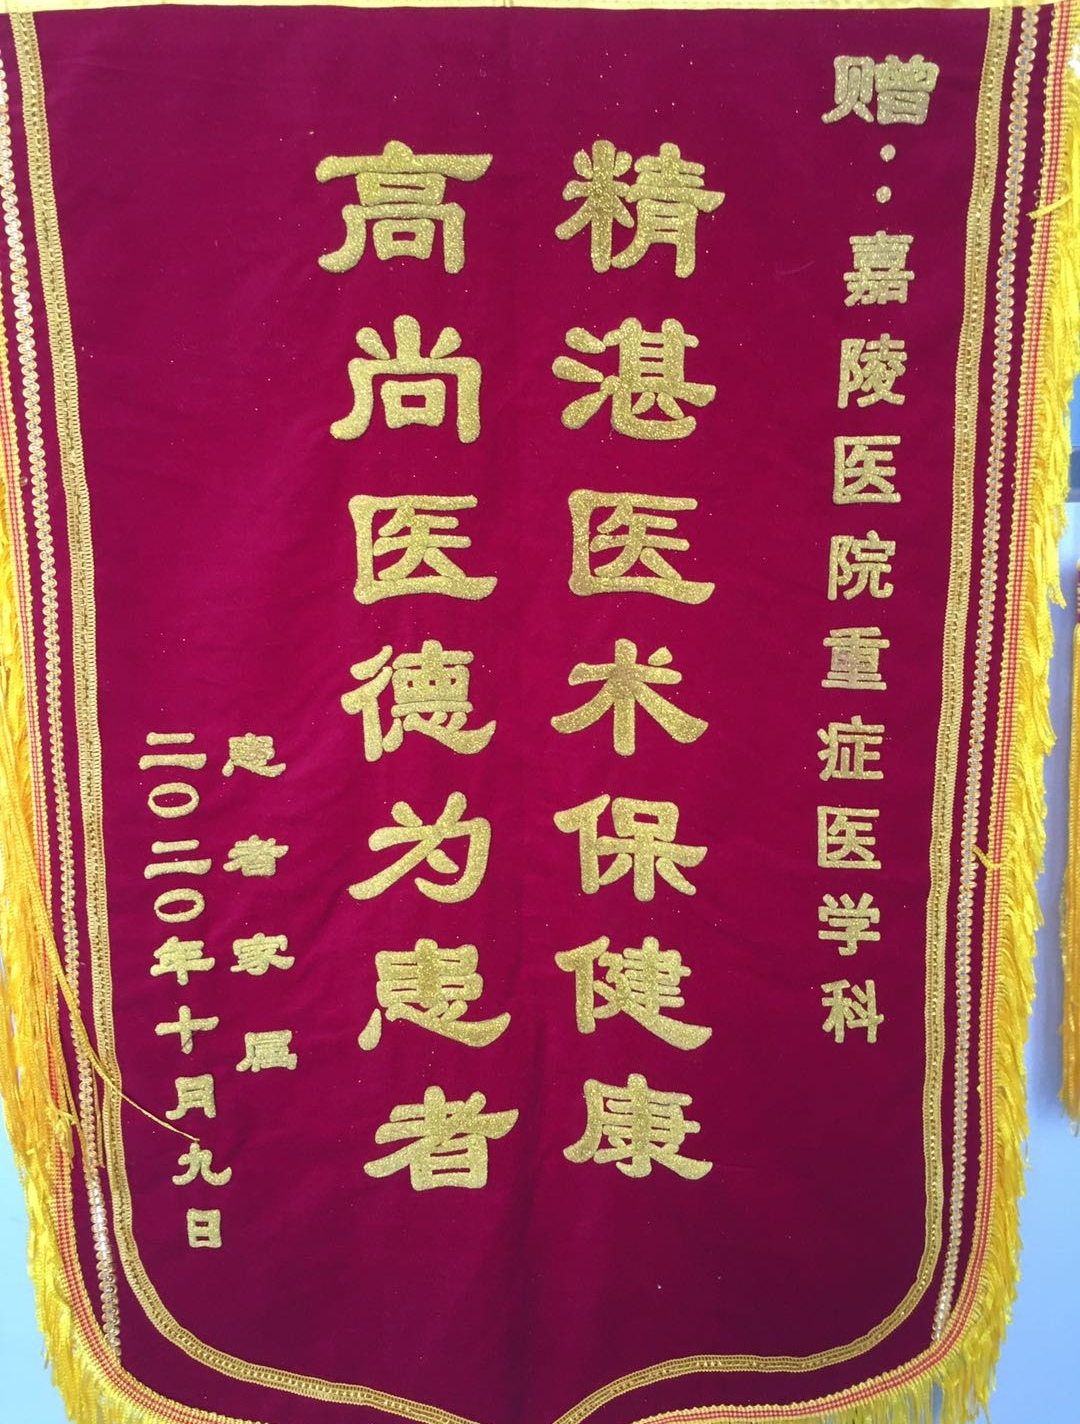 赠：嘉陵医院重症医学科
精湛医术保健康
高尚医德为患者
患者家属
二〇二〇年十月九日